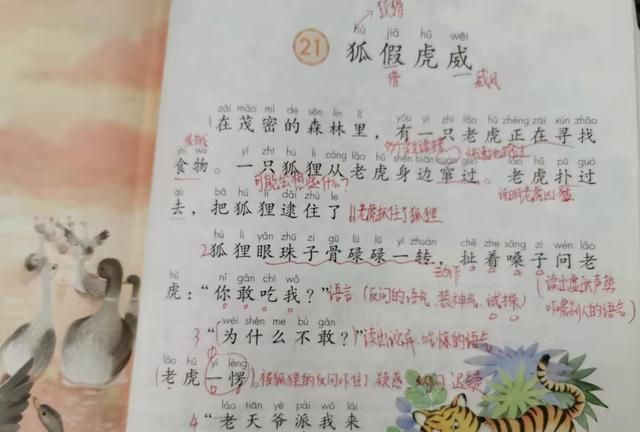 狐猾
hú jiǎ hǔ wēi
21 狐假虎威
借 威风
zài mào mì de sēn lín lǐ yǒu yì zhī lǎo hǔ zhèng zài xún zhǎo
1 在茂密的森林里，有一只老虎正在寻找
shí wù yì zhī hú li cóng lǎo hǔ shēn biān cuàn guò lǎo hǔ pū guò
食物。一只狐狸从老虎身边窜过。老虎扑过
可能会想些什么？ 说明老虎凶猛
qù bǎ hú li dǎi zhù le
去，把狐狸逮住了。 老虎抓住了狐狸
hú li yǎn zhū zi gū lù lù yí zhuàn chě zhe sǎng zi wèn lǎo
2 狐狸眼珠子骨碌碌一转，扯着嗓子问老
动作
hǔ nǐ gǎn chī wǒ
虎：“你敢吃我？” 语言（反问的语气，装神气，试探） （读出虚张声势
吓唬别人的语气）
wèi shén me bù gǎn
3 “为什么不敢？” 读出诧异、吃惊的语气
lǎo hǔ yí lèng
老虎一愣 被狐狸的反问吓住了 疑惑
lǎo tiān yé pài wǒ lái
4 “老天爷派我来